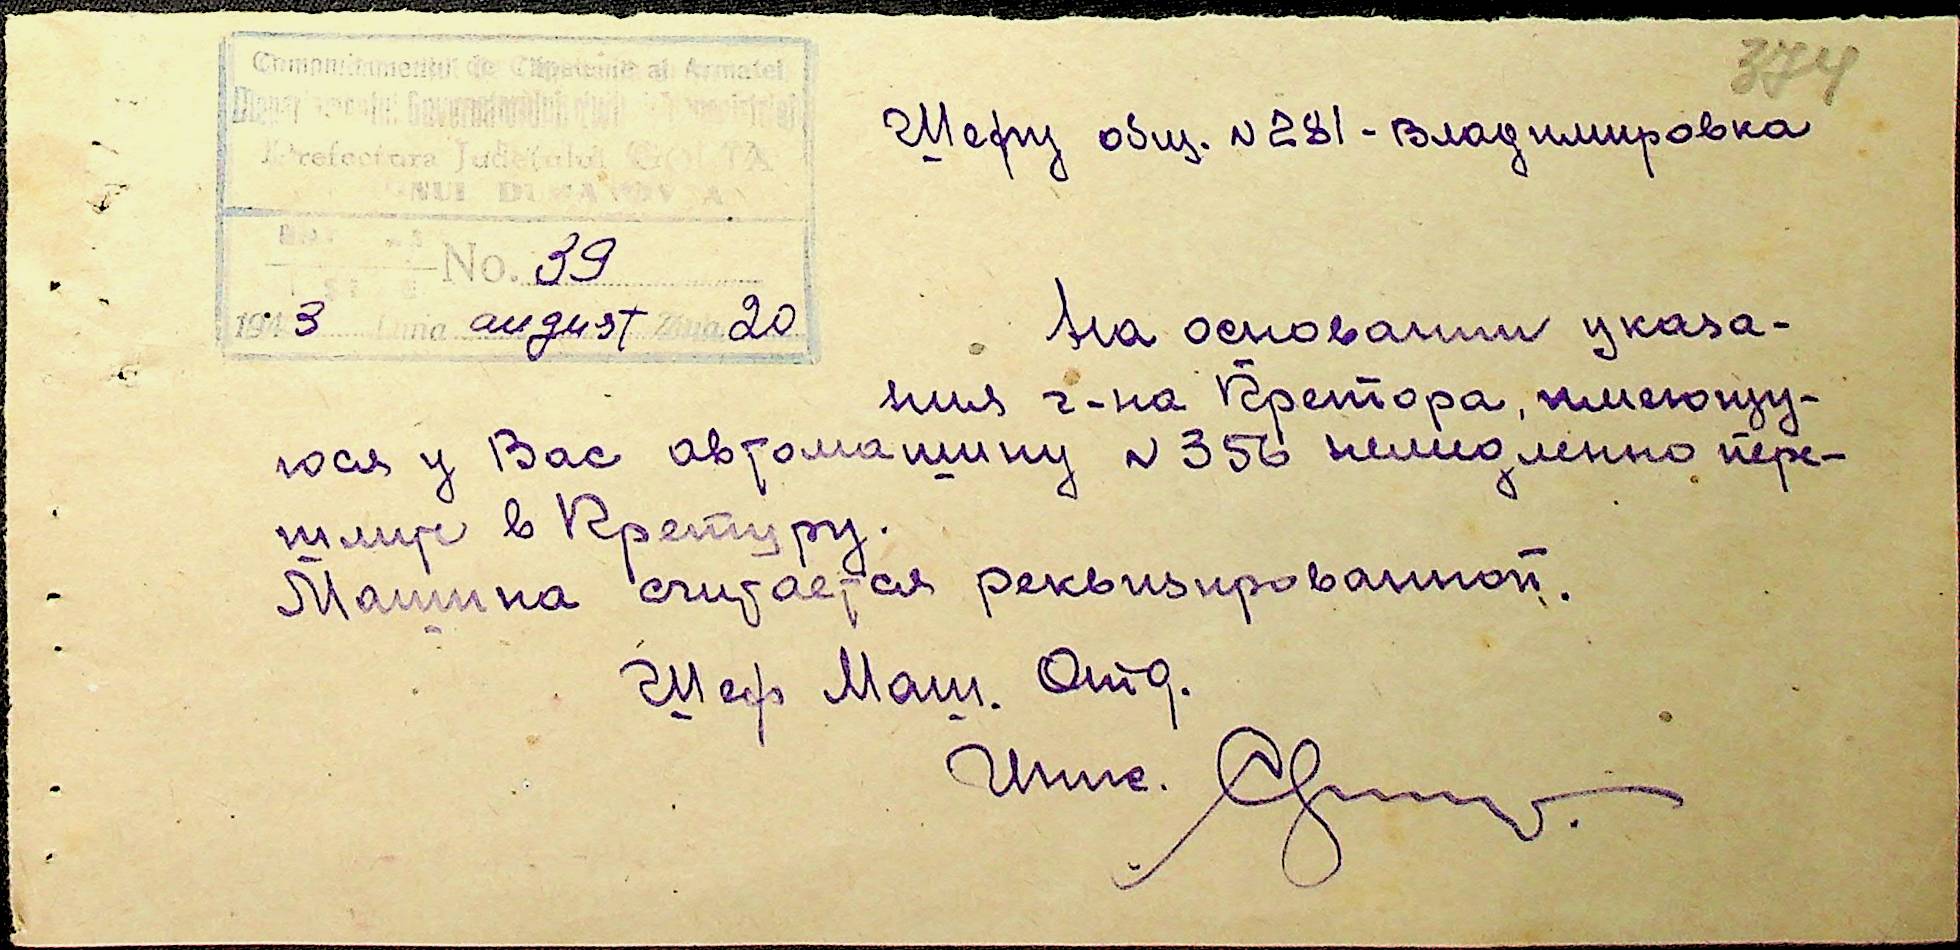 374
Comandamentul de Căpetenie al Armatei
Guvernatorului
Prefectura Județului GOLTA
No. 39
194 3 Luna august Ziua 20
Шефу общ. N 281 - Владимировка
На основании указа-
ния г-на Претора, имеющу-
юся у Вас автомашину N 356 немедленно пере-
шлите в Претуру.
Машина считается реквизированной.
Шеф Маш. Отд.
Инж.